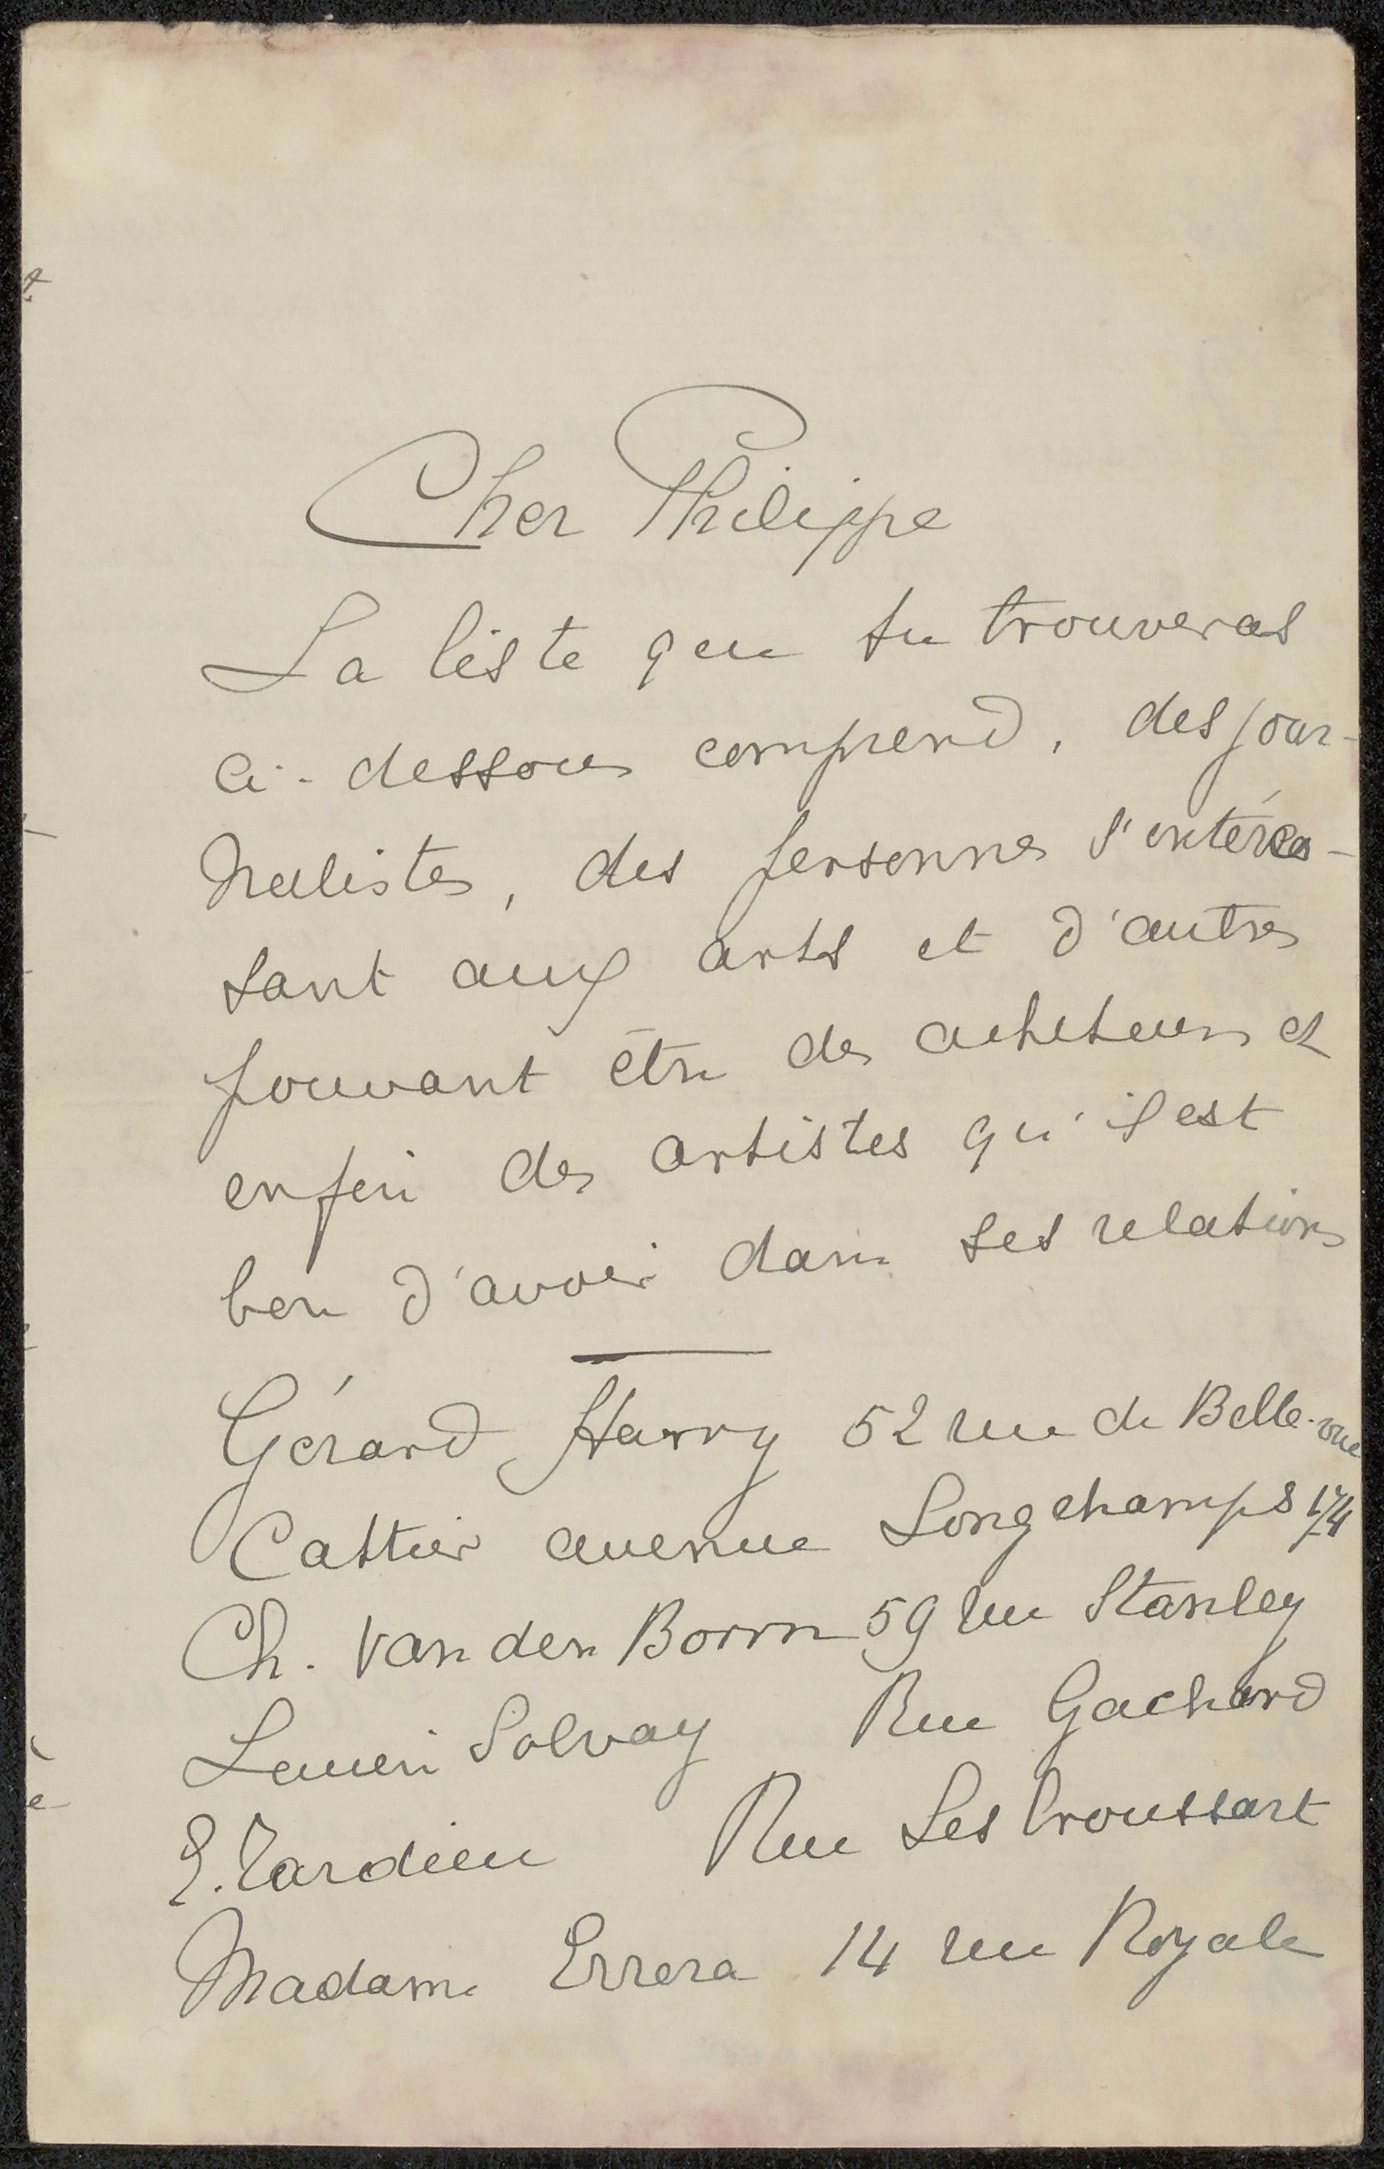 Cher Philippe
La liste que tu trouveras
ci-dessous comprend, des jour-
nalistes, des personnes s'intéres-
sant aux arts et d'autres
pouvant être des acheteurs et
enfin des artistes qu'il est
bon d'avoir dans ses relations
Gérard Harry 52 rue de Belle-vue
Cattier avenue Longchamps 174
Ch. Van den Borren 59 rue Stanley
Lucien Solvay Rue Gachard
E. Tardieu Rue Lesbroussart
Madame Errera 14 rue Royale